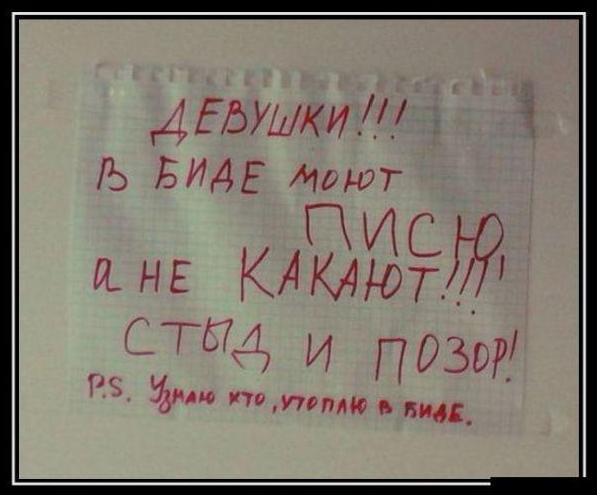 ДЕВУШКИ!!!
В БИДЕ МОЮТ
ПИСЮ
а НЕ КАКАЮТ!!!
СТЫД И ПОЗОР!
P.S. Узнаю кто, утоплю в биде.